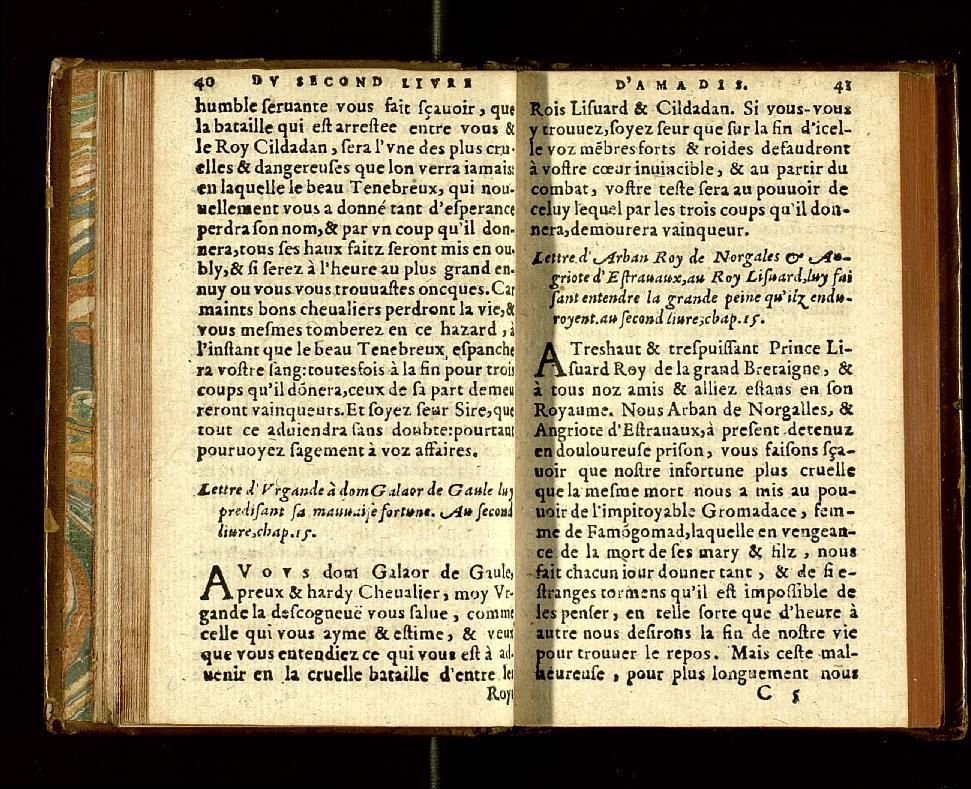 40 DV SECOND LIVRE
humble ſeruante vous fait ſçauoir, que
la bataille qui eſt arreſtee entre vous &
le Roy Cildadan, ſera l'vne des plus cru-
elles & dangereuſes que lon verra iamais:
en laquelle le beau Tenebreux, qui nou-
uellement vous a donné tant d'eſperance
perdra ſon nom,& par vn coup qu'il don-
nera,tous ſes haux faitz ſeront mis en ou-
bly,& ſi ſerez à l'heure au plus grand en-
nuy ou vous vous trouuaſtes oncques.Car
maints bons cheualiers perdront la vie,&
vous meſmes tomberez en ce hazard, à
l'inſtant que le beau Tenebreux eſpanche
ra voſtre ſang:toutesfois à la fin pour trois
coups qu'il dõnera,ceux de ſa part demeu
reront vainqueurs.Et ſoyez ſeur Sire,que
tout ce aduiendra ſans doubte:pourtant
pouruoyez ſagement à voz affaires.
Lettre d'Vrgande à dom Galaor de Gaule luy
prediſant ſa mauuaiſe fortune. Au ſecond
liure,chap.15.
A Vovs dom Galaor de Gaule,
preux & hardy Cheualier, moy Vr-
gande la deſcogneuë vous ſalue, comme
celle qui vous ayme & eſtime, & veux
que vous entendiez ce qui vous eſt à ad-
uenir en la cruelle bataille d'entre les
Roys
D'AMADIS. 41
Rois Liſuard & Cildadan. Si vous-vous
y trouuez,ſoyez ſeur que ſur la fin d'icel-
le voz mẽbres forts & roides defaudront
à voſtre cœur inuincible, & au partir du
combat, voſtre teſte ſera au pouuoir de
celuy lequel par les trois coups qu'il don-
nera,demourera vainqueur.
Lettre d'Arban Roy de Norgales & An-
griote d'Eſtrauaux,au Roy Liſuard,luy fai
ſant entendre la grande peine qu'ilz endu-
royent.au ſecond liure,chap.15.
A Treshaut & treſpuiſſant Prince Li-
ſuard Roy de la grand Bretaigne, &
à tous noz amis & alliez eſtans en ſon
Royaume. Nous Arban de Norgalles, &
Angriote d'Eſtrauaux,à preſent detenuz
en douloureuſe priſon, vous faiſons ſça-
uoir que noſtre infortune plus cruelle
que la meſme mort nous a mis au pou-
uoir de l'impitoyable Gromadace, fem-
me de Famõgomad,laquelle en vengean-
ce de la mort de ſes mary & filz, nous
fait chacun iour donner tant, & de ſi e-
ſtranges tormens qu'il eſt impoſſible de
les penſer, en telle ſorte que d'heure à
autre nous deſirons la fin de noſtre vie
pour trouuer le repos. Mais ceſte mal-
heureuſe, pour plus longuement nous
C 5